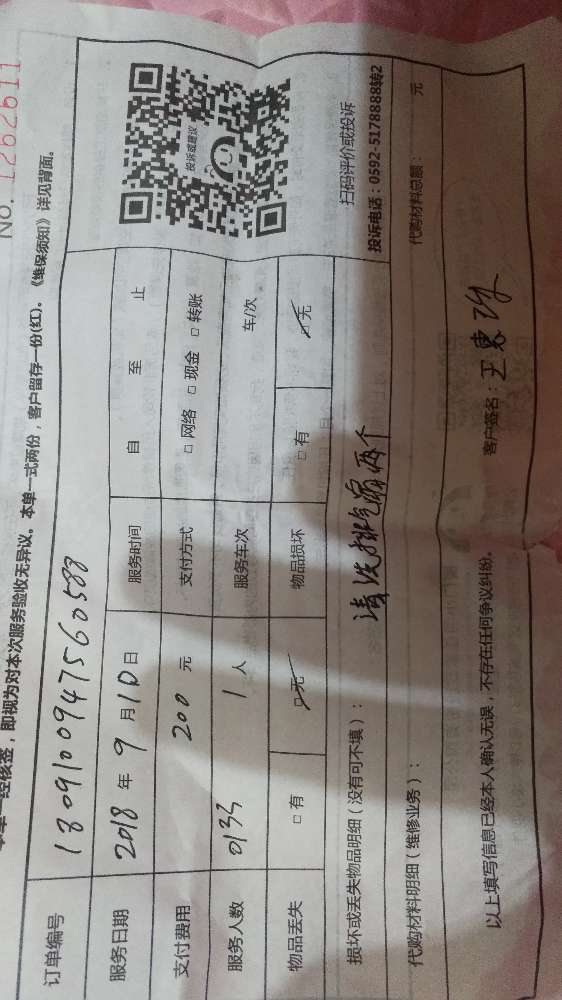 NO. 1262611
本单一经核签，即视为对本次服务验收无异议。本单一式两份，客户留存一份(红)。《维保须知》详见背面。
订单编号 1809100947560588
服务日期 2018 年 9 月 10 日 服务时间 自 至 止
支付费用 200 元 支付方式 □ 网络 □ 现金 □ 转账
服务人数 0133 1 人 服务车次 车/次
物品丢失 □ 有 □ 无 物品损坏 □ 有 □ 无
投诉或建议
扫码评价或投诉
投诉电话：0592-5178888转2
损坏或丢失物品明细（没有可不填）：
清洗排气扇两个
代购材料明细（维修业务）： 代购材料总额： 元
以上填写信息已经本人确认无误，不存在任何争议纠纷。 客户签名：王惠